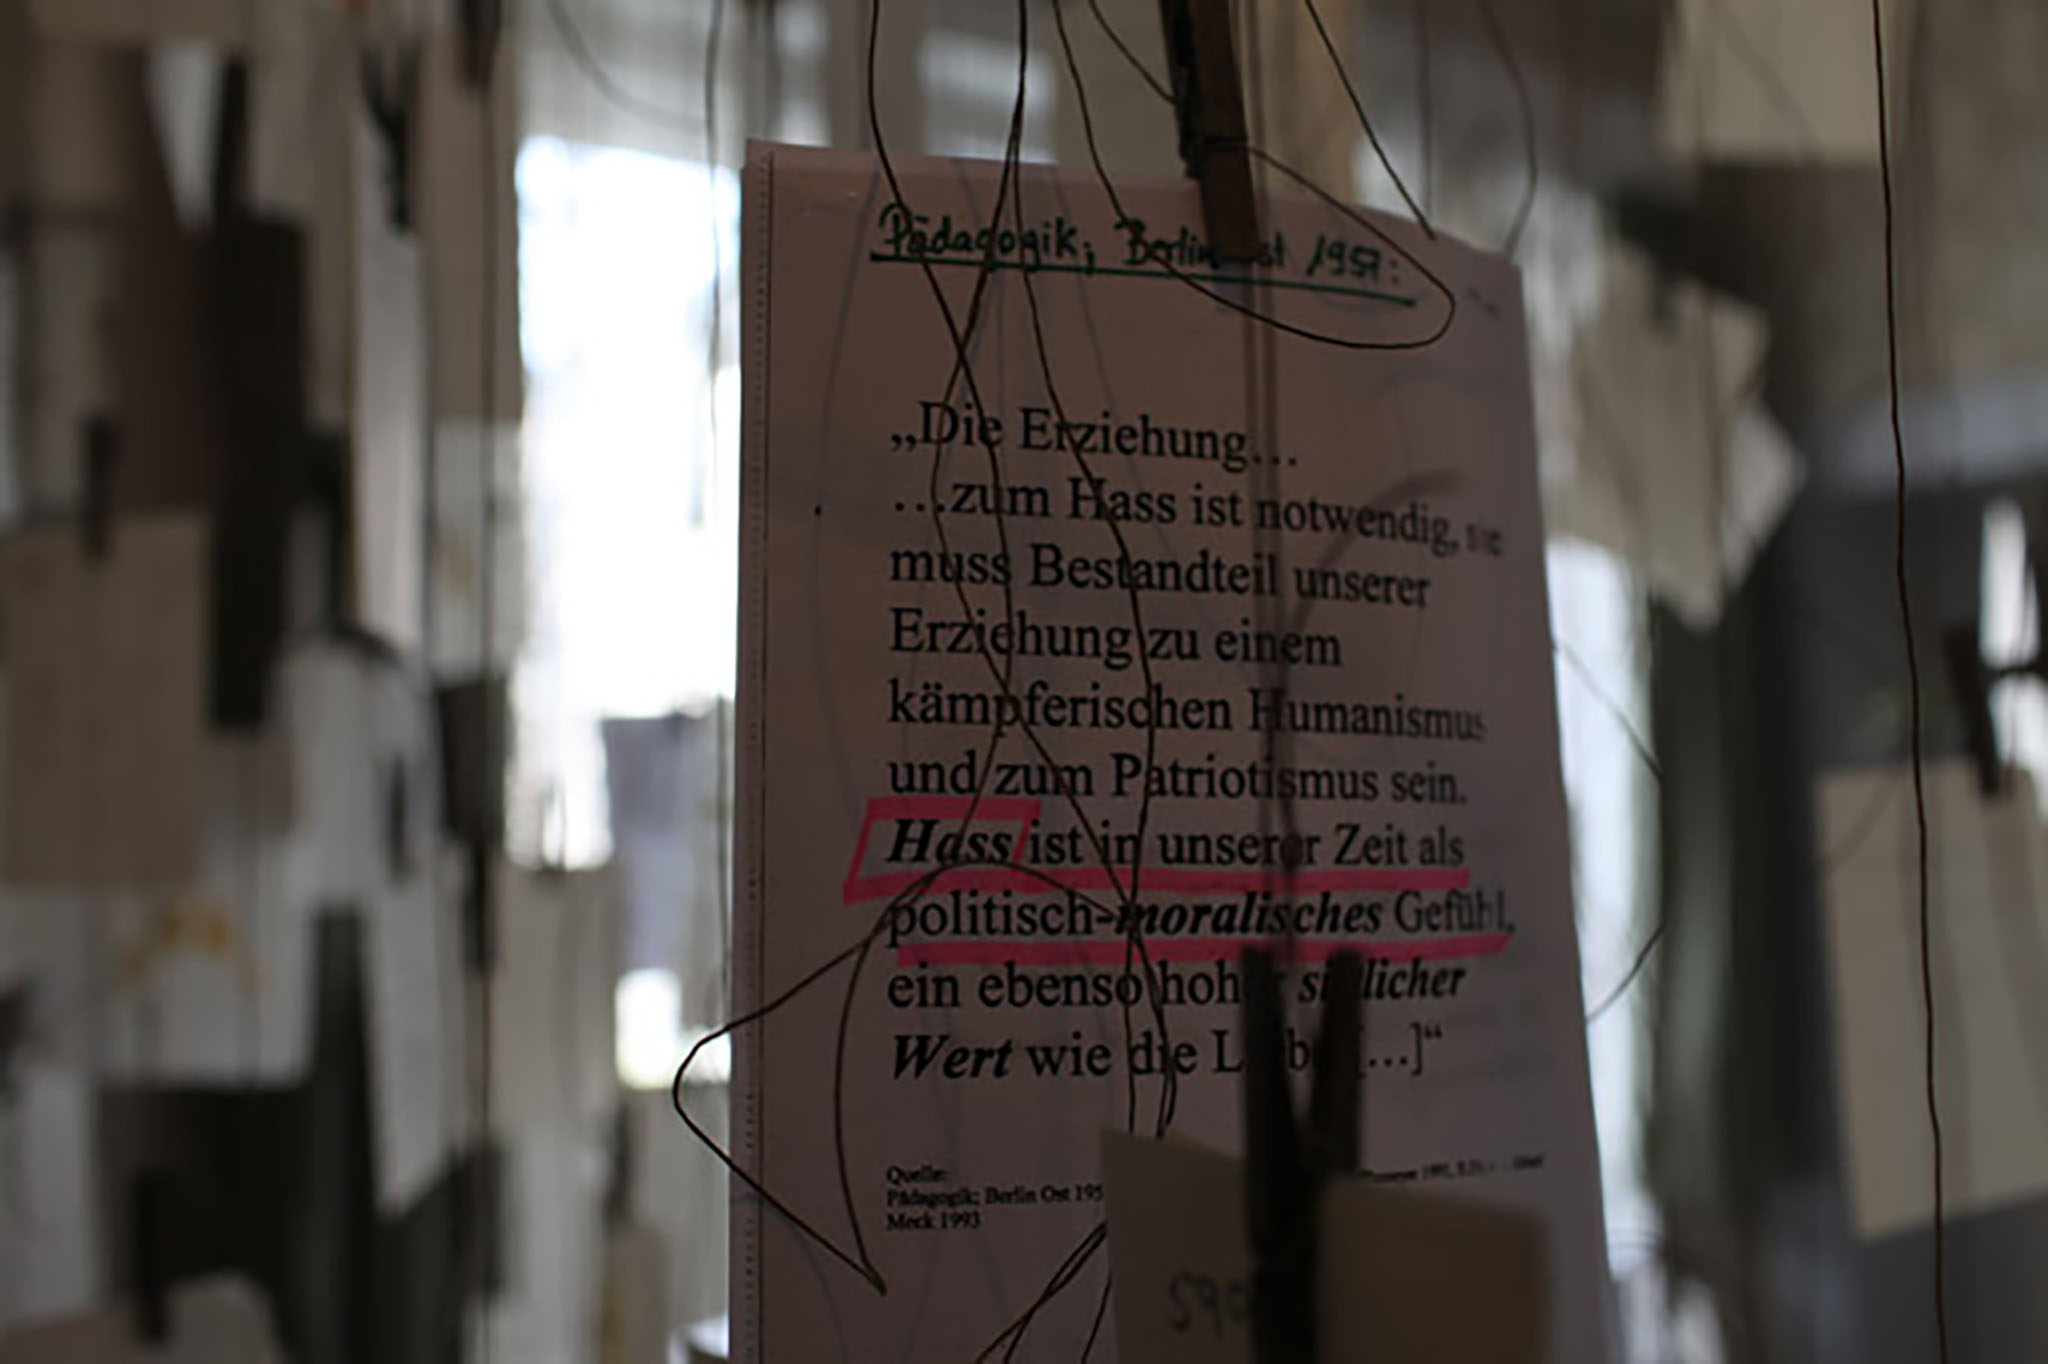 Pädagogik; Berlin Ost 1957:
„Die Erziehung…
…zum Hass ist notwendig, sie
muss Bestandteil unserer
Erziehung zu einem
kämpferischen Humanismus
und zum Patriotismus sein.
Hass ist in unserer Zeit als
politisch-moralisches Gefühl,
ein ebenso hoher sittlicher
Wert wie die Liebe […]“
Quelle:
Pädagogik; Berlin Ost 195
Meck 1993